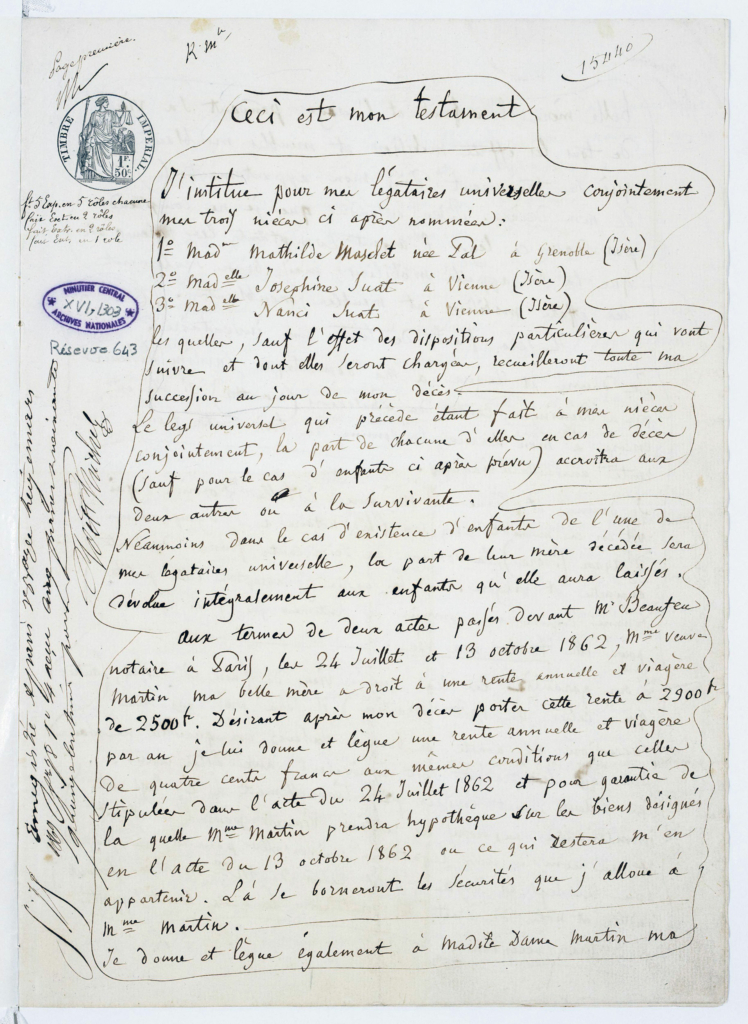 Page première.
R. Mr
15440
TIMBRE IMPERIAL
1 F. 50c
MINUTIER CENTRAL
XVI, 1303
ARCHIVES NATIONALES
Réserve 643
Ceci est mon testament
J'institue pour mes légataires universelles conjointement
mes trois nièces ci après nommées:
1º Made Mathilde Masclet née Pal à Grenoble (Isère)
2º Madelle Josephine Suat à Vienne (Isère)
3º Madelle Nanci Suat à Vienne (Isère)
les quelles, sauf l'effet des dispositions particulières qui vont
suivre et dont elles seront chargées, recueilleront toute ma
succession au jour de mon décès.
Le legs universel qui précède étant fait à mes nièces
conjointement, la part de chacune d'elles en cas de décès
(sauf pour le cas d'enfants ci après prévu) accroitra aux
deux autres ou à la survivante.
Néanmoins dans le cas d'existence d'enfants de l'une de
mes légataires universelle, la part de leur mère décédée sera
dévolue intégralement aux enfants qu'elle aura laissés.
aux termes de deux actes passés devant Me Beaufeu
notaire à Paris, les 24 Juillet et 13 octobre 1862, Mme veuve
Martin ma belle mère a droit à une rente annuelle et viagère
de 2500f. Désirant après mon décès porter cette rente à 2900f
par an je lui donne et lègue une rente annuelle et viagère
de quatre cents francs aux mêmes conditions que celles
stipulées dans l'acte du 24 Juillet 1862 et pour garantie de
la quelle Mme Martin prendra hypothèque sur les biens désignés
en l'acte du 13 octobre 1862 ou ce qui restera m'en
appartenir. Là se borneront les sécurités que j'alloue à
Mme Martin.
Je donne et lègue également à Madite Dame Martin ma